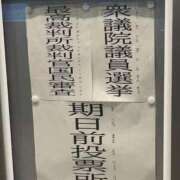 衆議院議員選挙
最高裁判所裁判官国民審査
期日前投票所